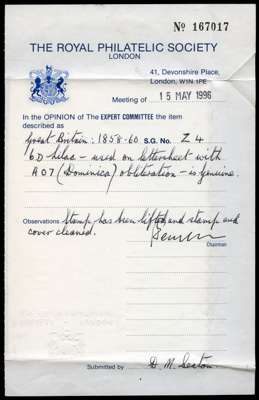 Nº 167017
THE ROYAL PHILATELIC SOCIETY
LONDON
41, Devonshire Place,
London, W1N 1PE
Meeting of 15 MAY 1996
In the OPINION of The EXPERT COMMITTEE the item
described as
Great Britain: 1858-60 S.G. No. Z4
6D lilac - used on lettersheet with
A07 (Dominica) obliteration - is genuine.
Observations Stamp has been lifted and stamp and
cover cleaned.
Chairman
Submitted by D. M. Seaton